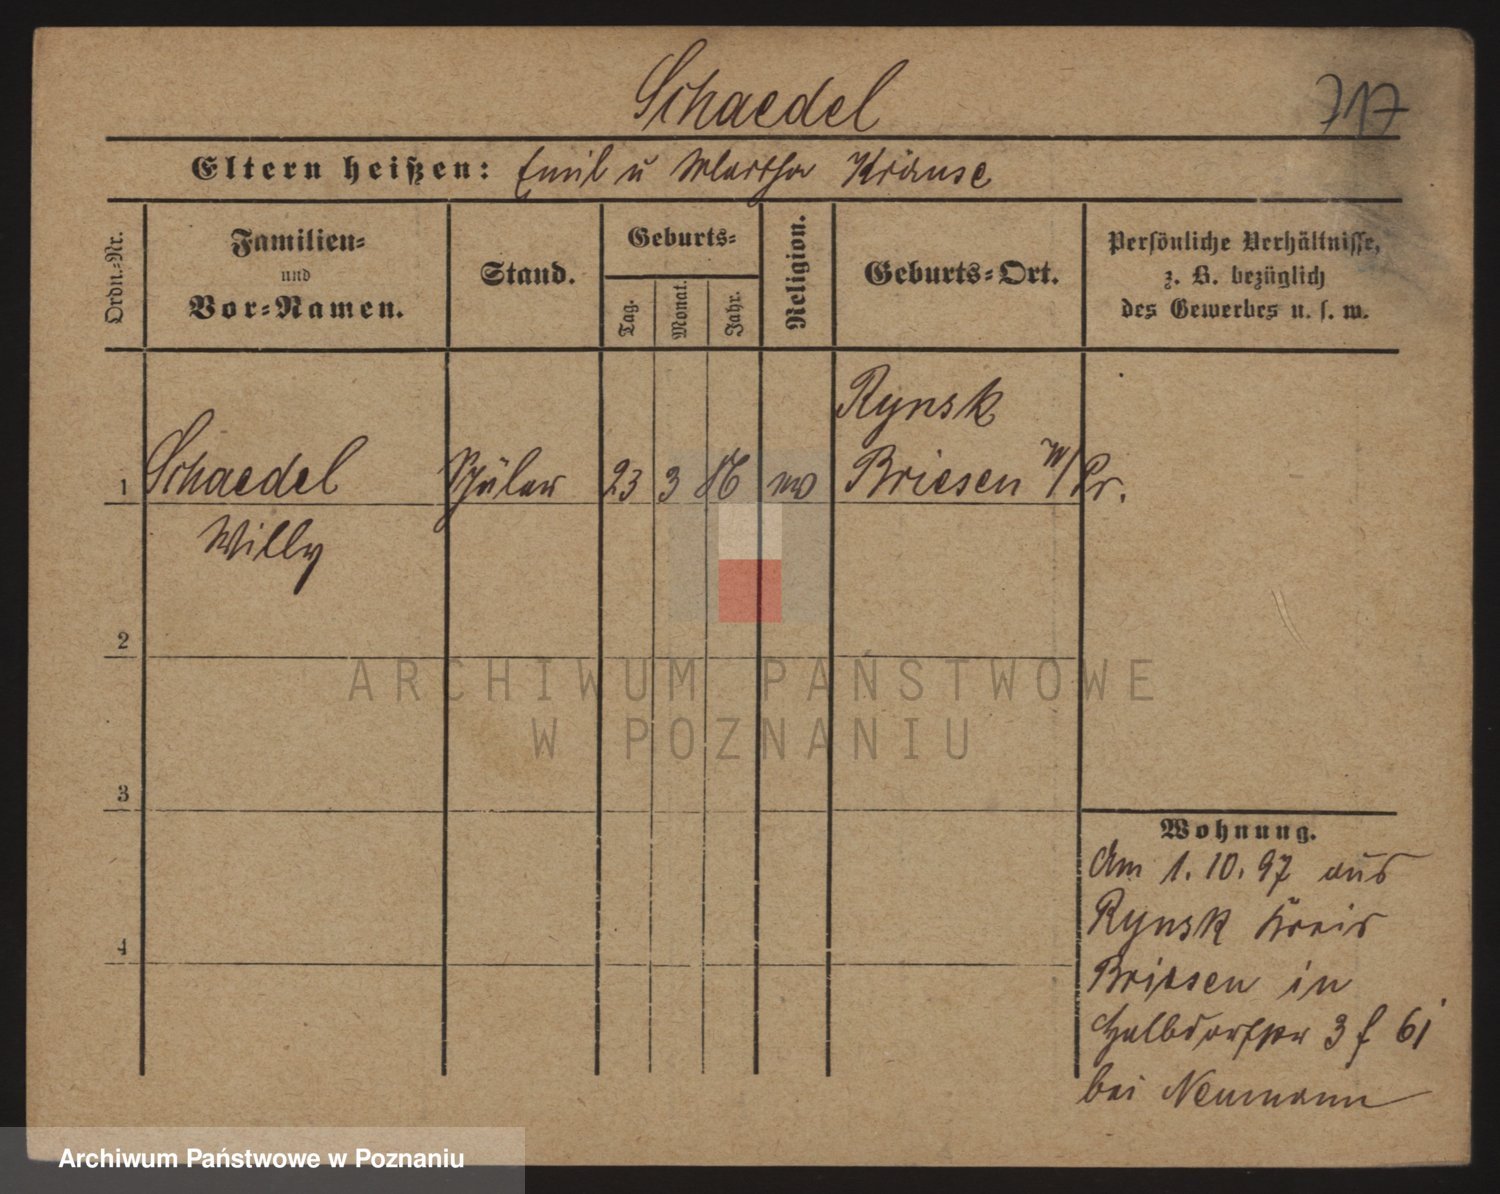 Schaedel
717
Eltern heißen: Emil u Martha Krause
Ordn.-Nr.
Familien-
und
Vor-Namen.
Stand.
Geburts-
Tag.
Monat.
Jahr.
Religion.
Geburts-Ort.
Persönliche Verhältnisse,
z. B. bezüglich
des Gewerbes u. s. w.
Rynsk
1 Schaedel Schüler 23 3 86 ev Briesen W/Pr.
Willy
2
3
4
Wohnung.
Am 1.10.97 aus
Rynsk Kreis
Briesen in
Halbdorfstr 3 f 61
bei Neumann
ARCHIWUM PAŃSTWOWE
W POZNANIU
Archiwum Państwowe w Poznaniu